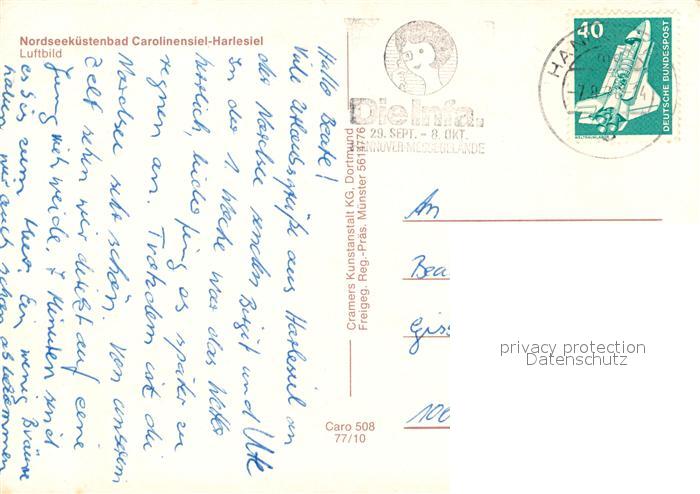 Nordseeküstenbad Carolinensiel-Harlesiel
Luftbild
Hallo Beate!
Viele Urlaubsgrüße aus Harlesiel an
der Nordsee senden Birgit und Ute
In der 1. Woche war das Wetter
herrlich, leider fing es später zu
regnen an. Trotzdem ist die
Nordsee sehr schön. Von unserem
Zelt sehen wir direkt auf eine
7 Minuten sind
es bis zum Meer. Ein wenig Bräune
haben wir auch schon abbekommen
Cramers Kunstanstalt KG, Dortmund
Freigeg. Reg.-Präs. Münster 5614776
Caro 508
77/10
HAN
Die Infa.
29. SEPT. - 8. OKT.
HANNOVER-MESSEGELÄNDE
40
DEUTSCHE BUNDESPOST
WELTRAUMLABOR
An
Bea
Giss
100
privacy protection
Datenschutz